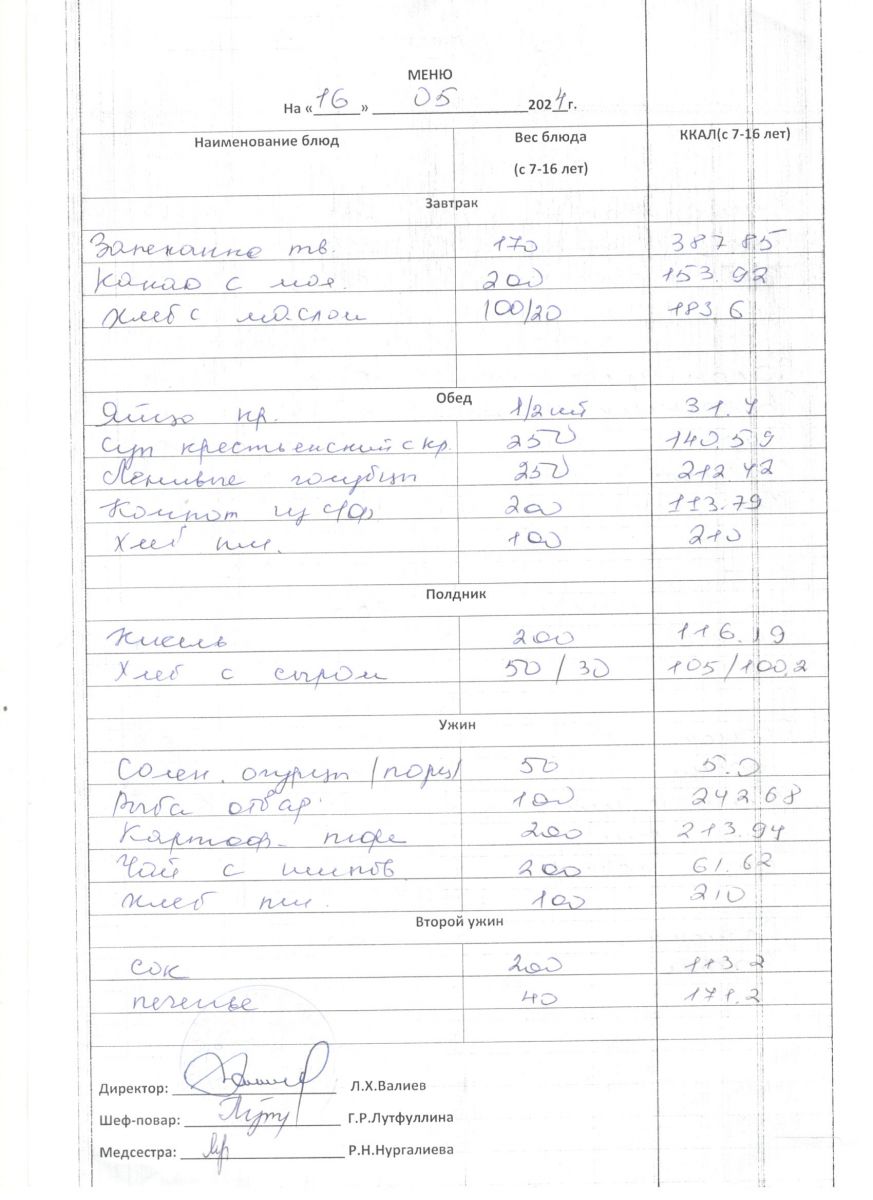 МЕНЮ
На «16» 05 2024г.
Наименование блюд Вес блюда (с 7-16 лет) ККАЛ(с 7-16 лет)
Завтрак
Запеканка тв. 170 387.85
Какао с мол. 200 153.92
Хлеб с маслом 100/20 183.6
Обед
Яйцо кр. 1/2 31.4
Суп крестьенский с кр. 250 140.59
Ленивые голубцы 250 212.42
Компот из с/ф 200 113.79
Хлеб пш. 100 210
Полдник
Кисель 200 116.19
Хлеб с сыром 50/30 105/100,2
Ужин
Солен. огурцы /порц/ 50 5.0
Рыба отвар. 100 242.68
Картоф. пюре 200 213.94
Чай с шипов. 200 61.62
Хлеб пш. 100 210
Второй ужин
сок 200 113.2
печенье 40 171.2
Директор: Л.Х.Валиев
Шеф-повар: Г.Р.Лутфуллина
Медсестра: Р.Н.Нургалиева